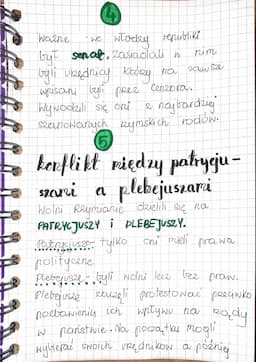 4
Ważne we włoskiej republiki
był senat. Zasiadali w nim
byli urzędnicy którzy na zawsze
wpisani byli przez cenzora.
Wywodzili się oni z najbardziej
szanowanych rzymskich rodów.
5
konflikt między patrycju-
szami a plebejuszami
Wolni Rzymianie dzielili się na
PATRYCJUSZY i PLEBEJUSZY.
Patrycjusze- tylko oni mieli prawa
polityczne.
Plebejusze- byli wolni lecz bez praw.
Plebejusze zaczęli protestować przeciwko
pozbawieniu ich wpływu na rządy
w państwie. Na początku mogli
wybierać swoich urzędników a później